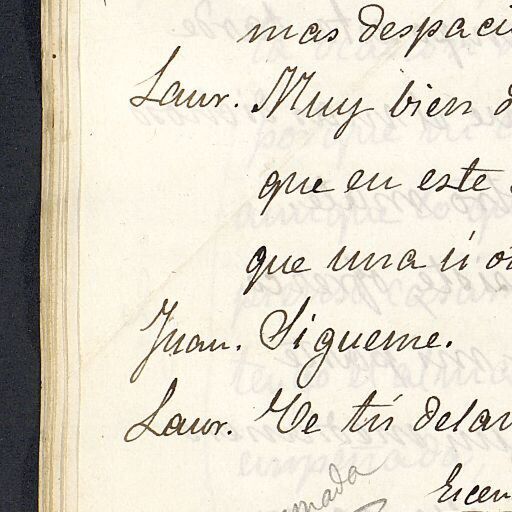 mas despaci
Laur. Muy bien d
que en este
que una ú o
Juan. Sigueme.
Laur. Ve tú delan
Escen
mada